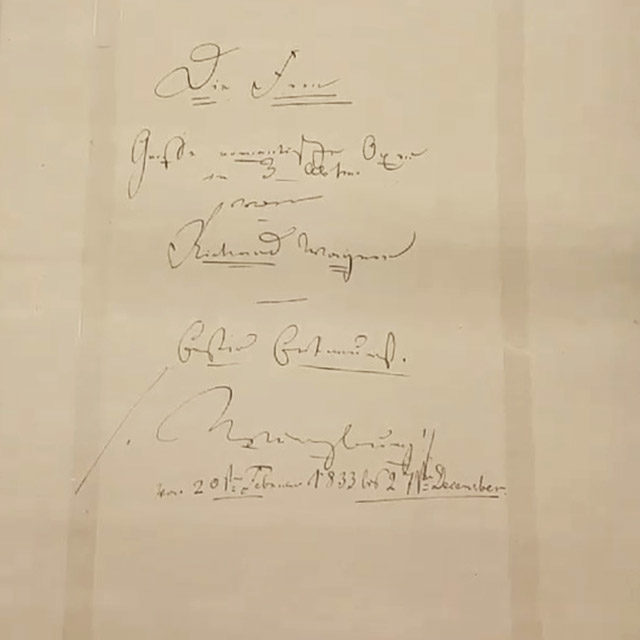 Die Feen
Große romantische Oper
in 3 Akten.
von
Richard Wagner
Erster Entwurf.
Würzburg
von 20ten Februar 1833 bis 27ten December